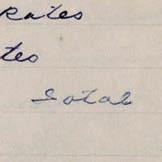 Rates
tes
Total